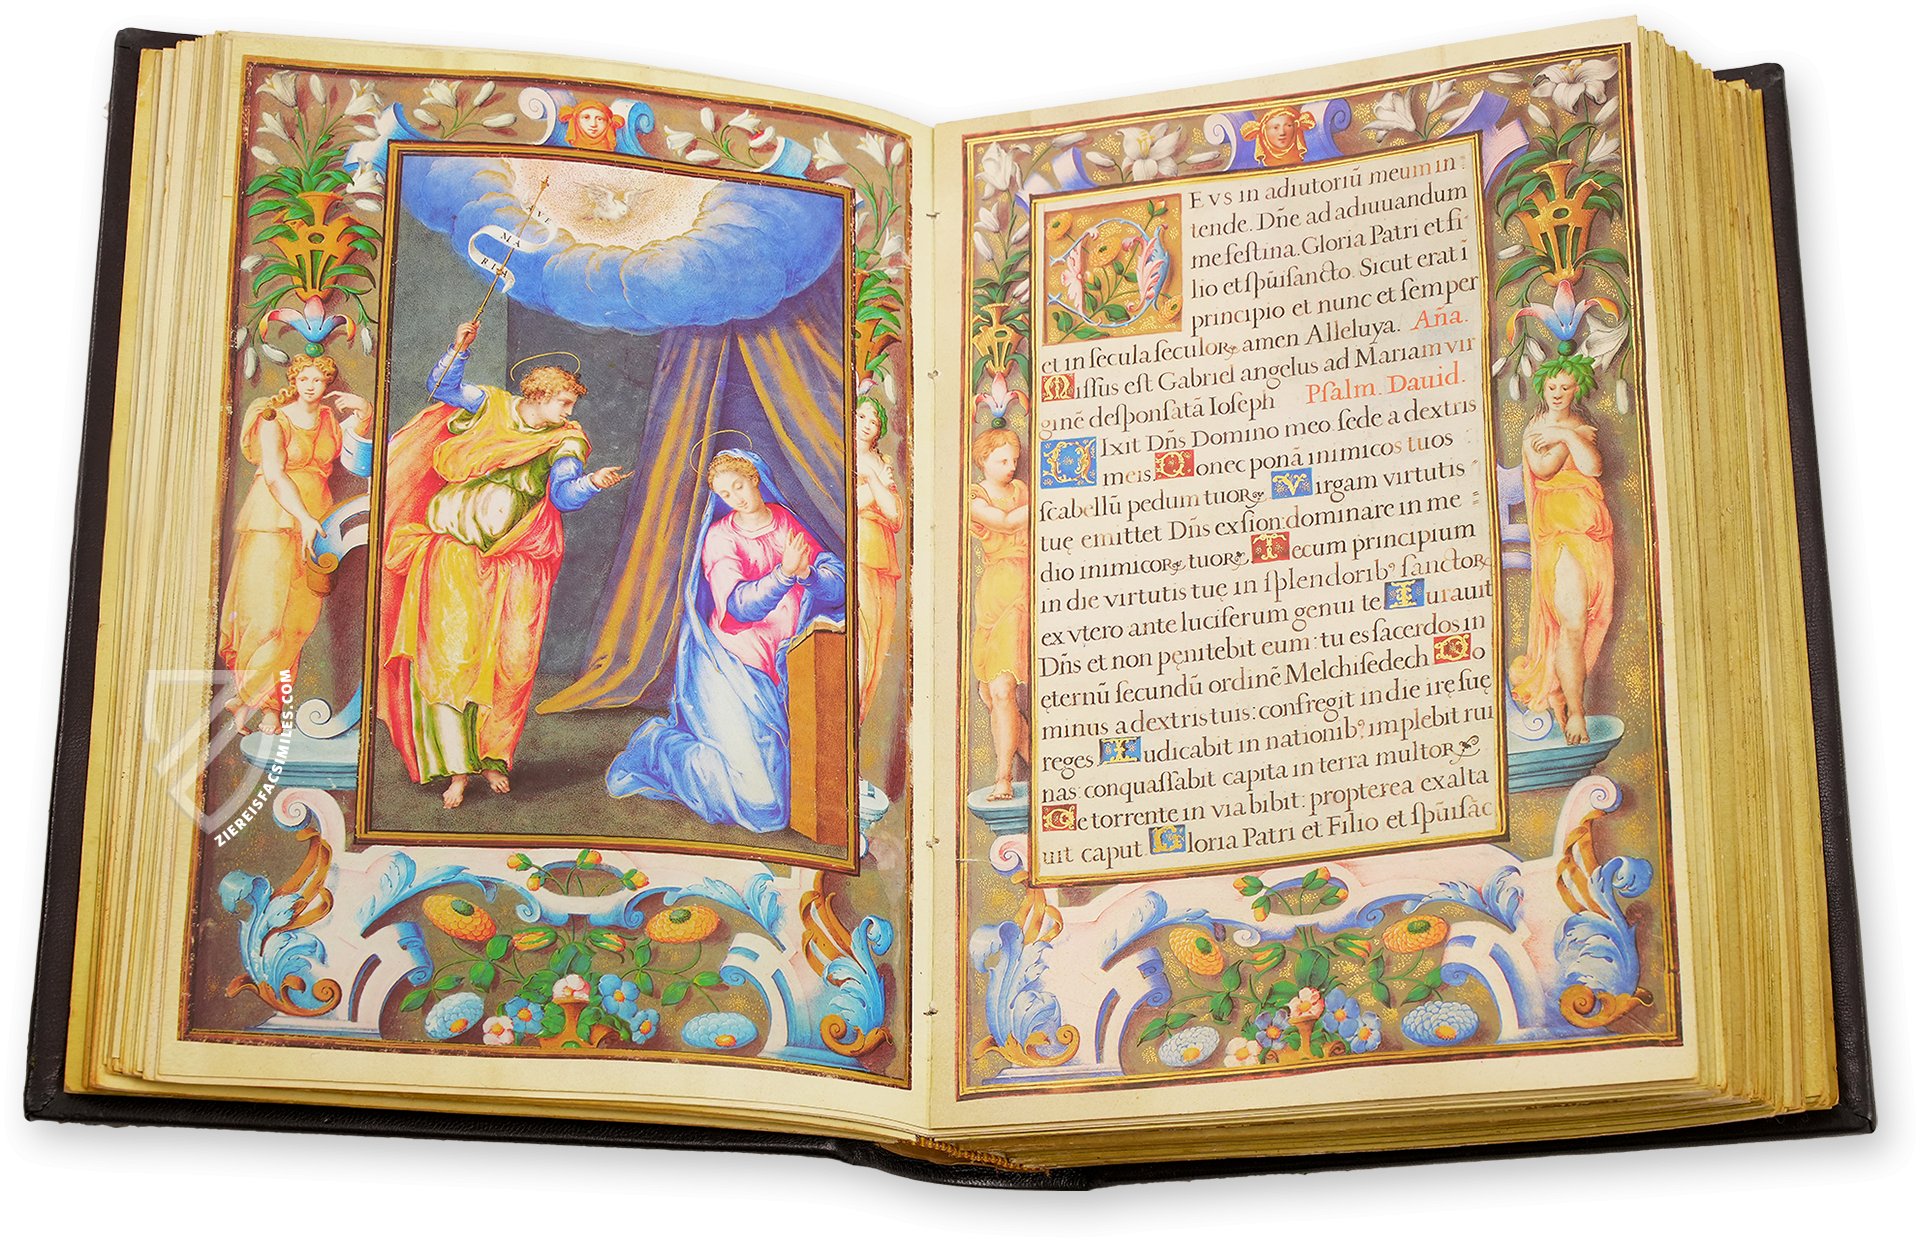 AVE
MA
RIA
EVS in adiutoriũ meum in:
tende. Dñe ad adiuuandum
me feſtina. Gloria Patri et fi
lio et ſpũiſancto. Sicut erat ĩ
principio et nunc et ſemper
et in ſecula ſeculoꝝ amen Alleluya. Aña.
Miſſus eſt Gabriel angelus ad Mariam vir
ginẽ deſponſatã Ioſeph Pſalm. Dauid.
DIxit Dñs Domino meo: ſede a dextris
meis. Donec ponã inimicos tuos
ſcabellũ pedum tuoꝝ Virgam virtutis
tuę emittet Dñs ex ſion: dominare in me:
dio inimicoꝝ tuoꝝ. Tecum principium
in die virtutis tuę in ſplendoribꝰ ſanctoꝝ
ex vtero ante luciferum genui te Iurauit
Dñs et non pęnitebit eum: tu es ſacerdos in
ęternũ ſecundũ ordinẽ Melchiſedech Do
minus a dextris tuis: confregit in die irę ſuę
reges Iudicabit in nationibꝰ implebit rui
nas: conquaſſabit capita in terra multoꝝ
De torrente in via bibit: propterea exalta
uit caput. Gloria Patri et Filio et ſpũiſãc
ZIEREISFACSIMILES.COM